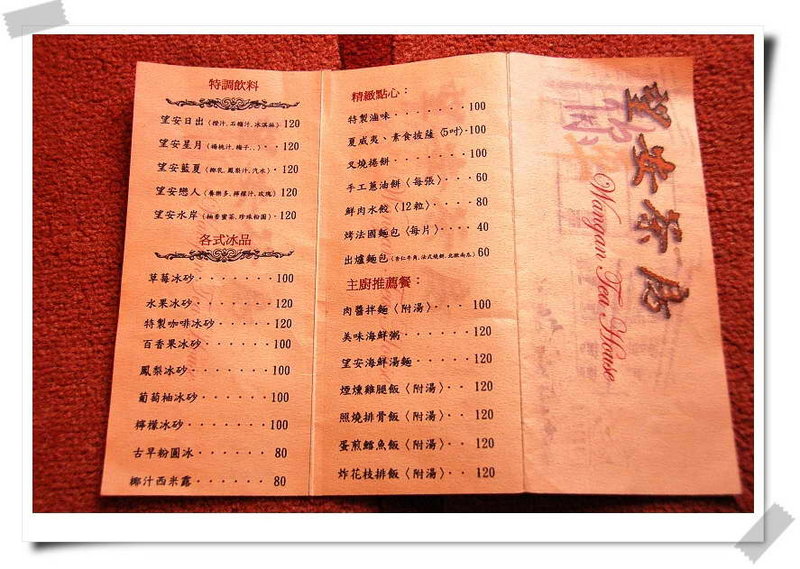 特調飲料
望安日出〈橙汁,石榴汁,冰淇淋〉120
望安星月〈楊桃汁,梅子..〉‧‧120
望安藍夏〈椰乳,鳳梨汁,汽水〉‧120
望安戀人〈養樂多,檸檬汁,玫瑰〉120
望安水岸〈柚香蜜茶,珍珠粉圓〉‧120
各式冰品
草莓冰砂‧‧‧‧‧‧‧100
水果冰砂‧‧‧‧‧‧‧120
特製咖啡冰砂‧‧‧‧‧120
百香果冰砂‧‧‧‧‧‧100
鳳梨冰砂‧‧‧‧‧‧‧100
葡萄柚冰砂‧‧‧‧‧‧100
檸檬冰砂‧‧‧‧‧‧‧100
古早粉圓冰‧‧‧‧‧‧80
椰汁西米露‧‧‧‧‧‧80
精緻點心：
特製滷味‧‧‧‧‧‧‧100
夏威夷、素食披薩〈5吋〉‧100
叉燒捲餅‧‧‧‧‧‧‧100
手工蔥油餅〈每張〉‧‧‧60
鮮肉水餃〈12粒〉‧‧‧‧80
烤法國麵包〈每片〉‧‧‧‧40
出爐麵包〈杏仁牛角,法式燒餅,北歐南瓜〉60
主廚推薦餐：
肉醬拌麵〈附湯〉‧‧‧100
美味海鮮粥‧‧‧‧‧‧120
望安海鮮湯麵‧‧‧‧‧120
煙燻雞腿飯〈附湯〉‧‧120
照燒排骨飯〈附湯〉‧‧120
蛋煎鱈魚飯〈附湯〉‧‧120
炸花枝排飯〈附湯〉‧‧120
望安茶店
Wangan Tea House